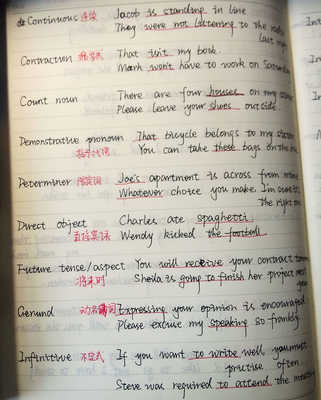 Continuous 连续 Jacob is standing in line
They were not listening to the radio
last night
Contraction 缩写式 That isn't my book.
Mark won't have to work on Saturday
Count noun There are four houses on my street
Please leave your shoes outside.
Demonstrative pronoun That bicycle belongs to my sister
指示代词 You can take these bags on the
Determiner 限定词 Joe's apartment is across from mine
Whatever choice you make, I'm sure it's
The right one
Direct object Charles ate spaghetti.
直接宾语 Wendy kicked the football.
Future tense/aspect You will receive your contract
将来时 Sheila is going to finish her project next
year
Gerund 动名词 Expressing your opinion is encouraged.
Please excuse my speaking so frankly.
Infinitive 不定式 If you want to write well you must
practise often.
Steve was required to attend the meeting